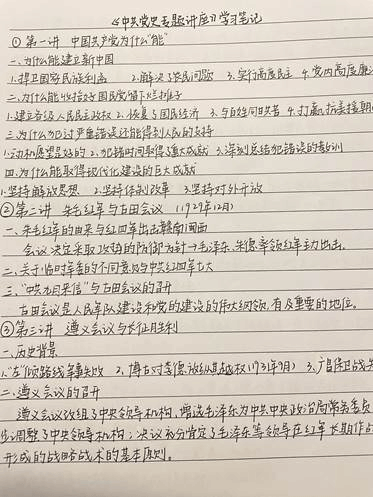 《中共党史专题讲座》学习笔记
①第一讲 中国共产党为什么"能"
一、为什么能建立新中国
1.捍卫国家民族利益 2.解决了农民问题 3.实行高度民主 4.党内高度廉
二、为什么能收拾好国民党留下烂摊子
1.建立各级人民民主政权 2.恢复了国民经济 3.与百姓同甘苦 4.打赢抗美援朝
三、为什么犯过严重错误还能得到人民的支持
1.动机愿望是好的 2.犯错时间取得重大成就 3.深刻总结犯错误的教训
四、为什么能取得现代化建设的巨大成就
1.坚持解放思想 2.坚持体制改革 3.坚持对外开放
②第二讲 朱毛红军与古田会议 (1929年12月)
一、朱毛红军的由来与红四军出击赣南闽西
会议决定采取攻势的防御方针→毛泽东、朱德率领红军主力出击。
二、关于临时军委的不同意见与中共红四军七大
三、"中央九月来信"与古田会议的召开
古田会议是人民军队建设和党的建设的伟大纲领,有及重要的地位。
③第三讲 遵义会议与长征胜利
一、历史背景
1."左"倾路线军事失败 2.博古对李德 (1931年9月) 3.广昌保卫战失
二、遵义会议的召开
遵义会议改组了中央领导机构,增选毛泽东为中共中央政治局常务委员
步调整了中央领导机构;决议充分肯定了毛泽东等领导在红军长期作战
形成的战略战术的基本原则。